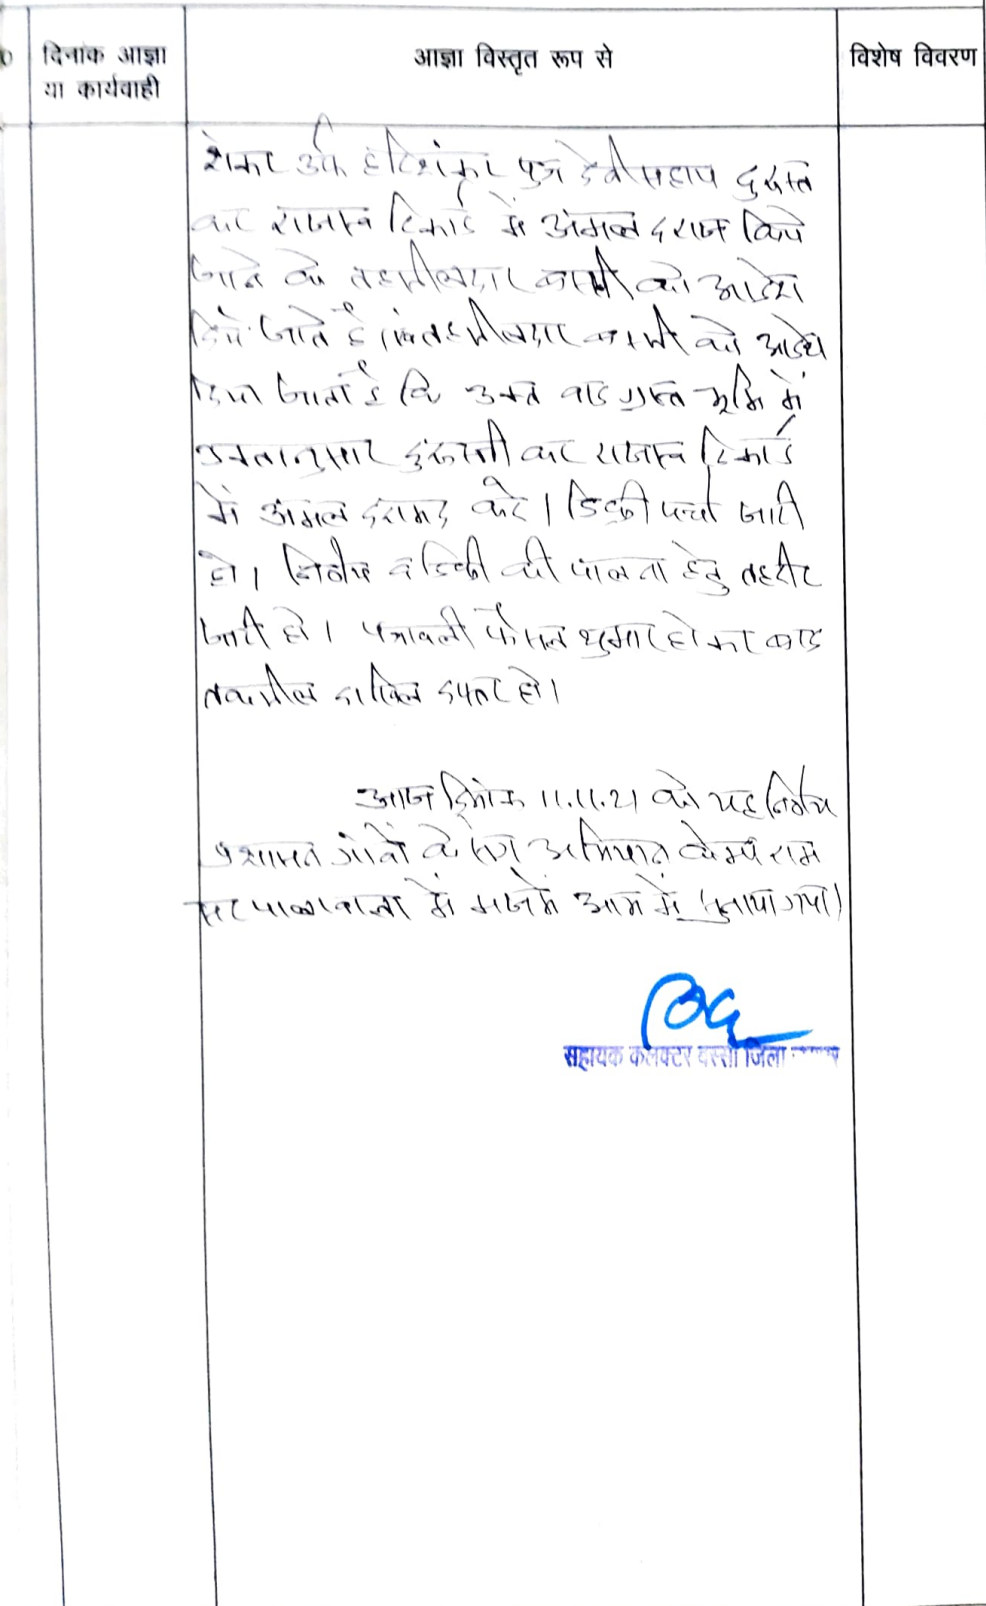 दिनांक आज्ञा
या कार्यवाही
आज्ञा विस्तृत रूप से
विशेष विवरण
शंकर उर्फ हरिशंकर पुत्र देवीसहाय दुरूस्त
कर राजस्व रिकार्ड में अमल दराज किये
जाने के तहसीलदार बस्सी को आदेश
दिये जाते है। तहसीलदार बस्सी को आदेश
दिया जाता है कि उक्त वादग्रस्त भूमि में
उक्तानुसार दुरूस्ती कर राजस्व रिकार्ड
में अमल दरामद करे। डिक्री पर्चा जारी
हो। निर्णय व डिक्री की पालना हेतु तहरीर
जारी हो। पत्रावली फैसल शुमार होकर बाद
तकमील दाखिल दफ्तर हो।
आज दिनांक 11.11.21 को यह निर्णय
प्रशासन गांवों के संग अभियान केम्प राम
सर पालावाला में मजमे आम में सुनाया गया।
सहायक कलक्टर बस्सी जिला